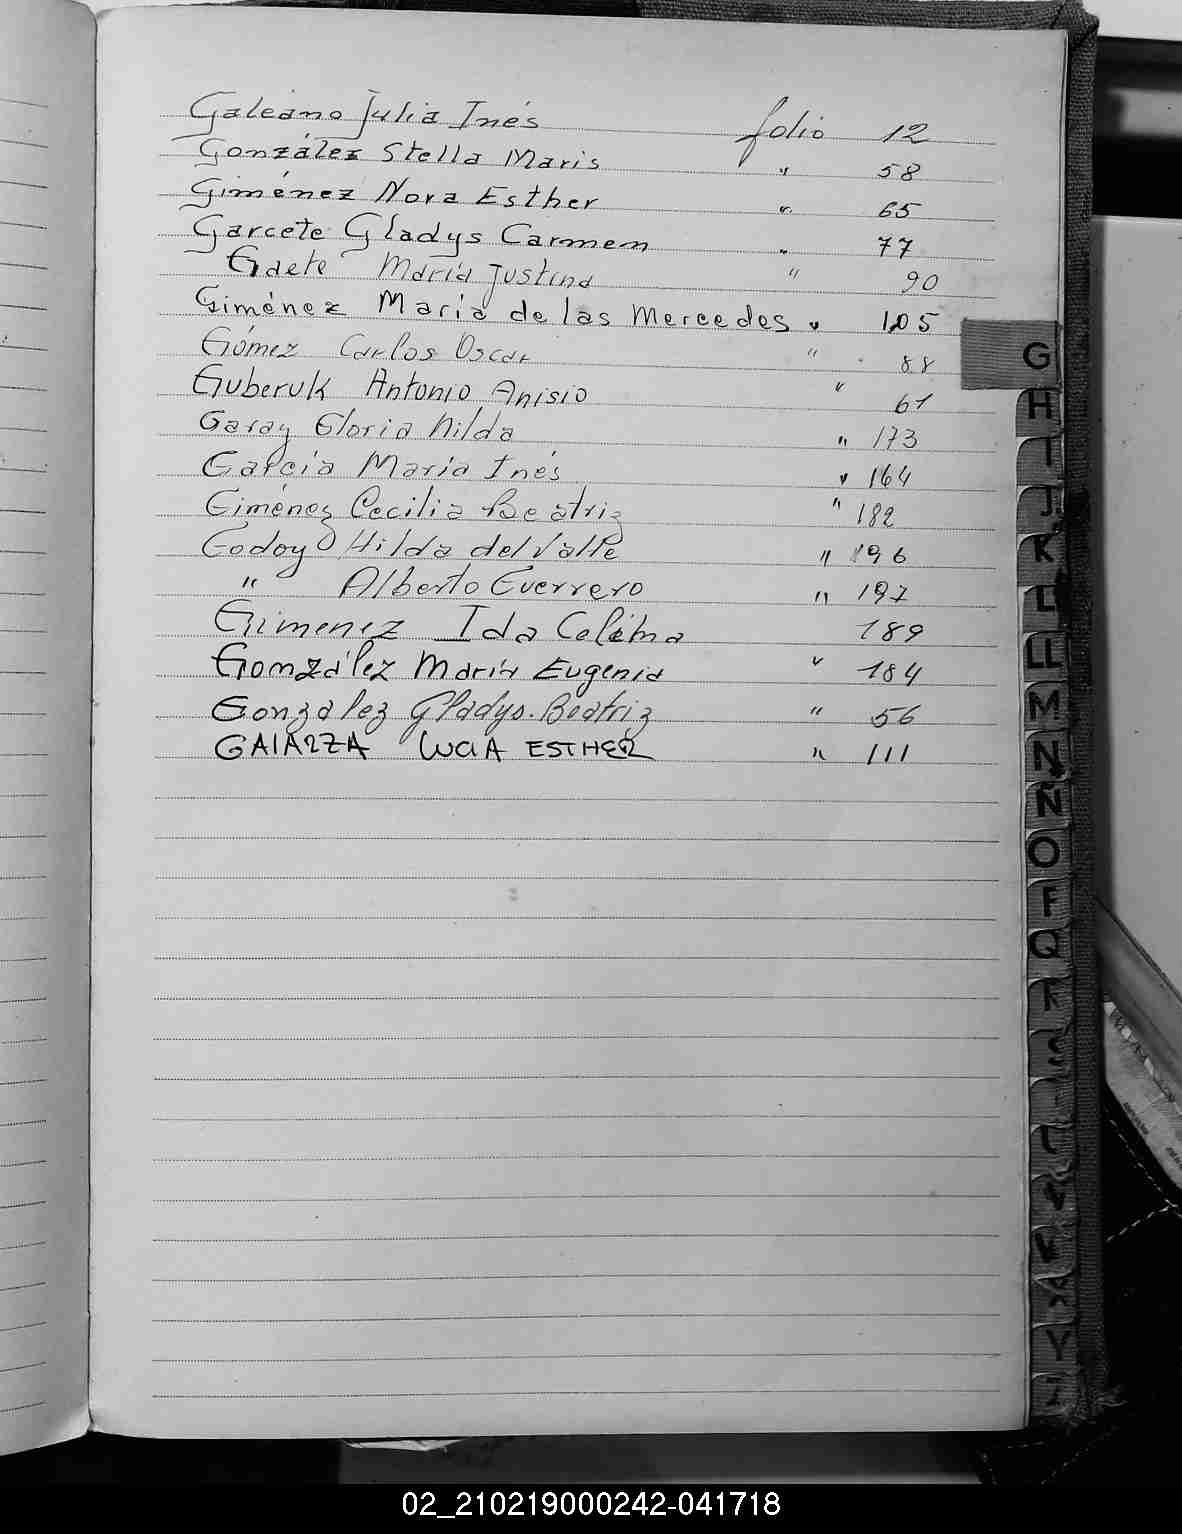 Galeano Julia Inés folio 12
González Stella Maris " 58
Giménez Nora Esther " 65
Garcete Gladys Carmen " 77
Gaete María Justina " 90
Giménez María de las Mercedes " 105
Gómez Carlos Oscar " 88
Guberuk Antonio Anisio " 61
Garay Gloria Nilda " 173
García María Inés " 164
Giménez Cecilia Beatriz " 182
Godoy Hilda del Valle " 196
" Alberto Guerrero " 197
Gimenez Ida 189
González María Eugenia " 184
González Gladys Beatriz " 56
LUCIA ESTHER " 111
G
H
I
J
K
L
LL
M
N
Ñ
O
P
Q
R
S
T
U
V
X
Y
Z
02_210219000242-041718